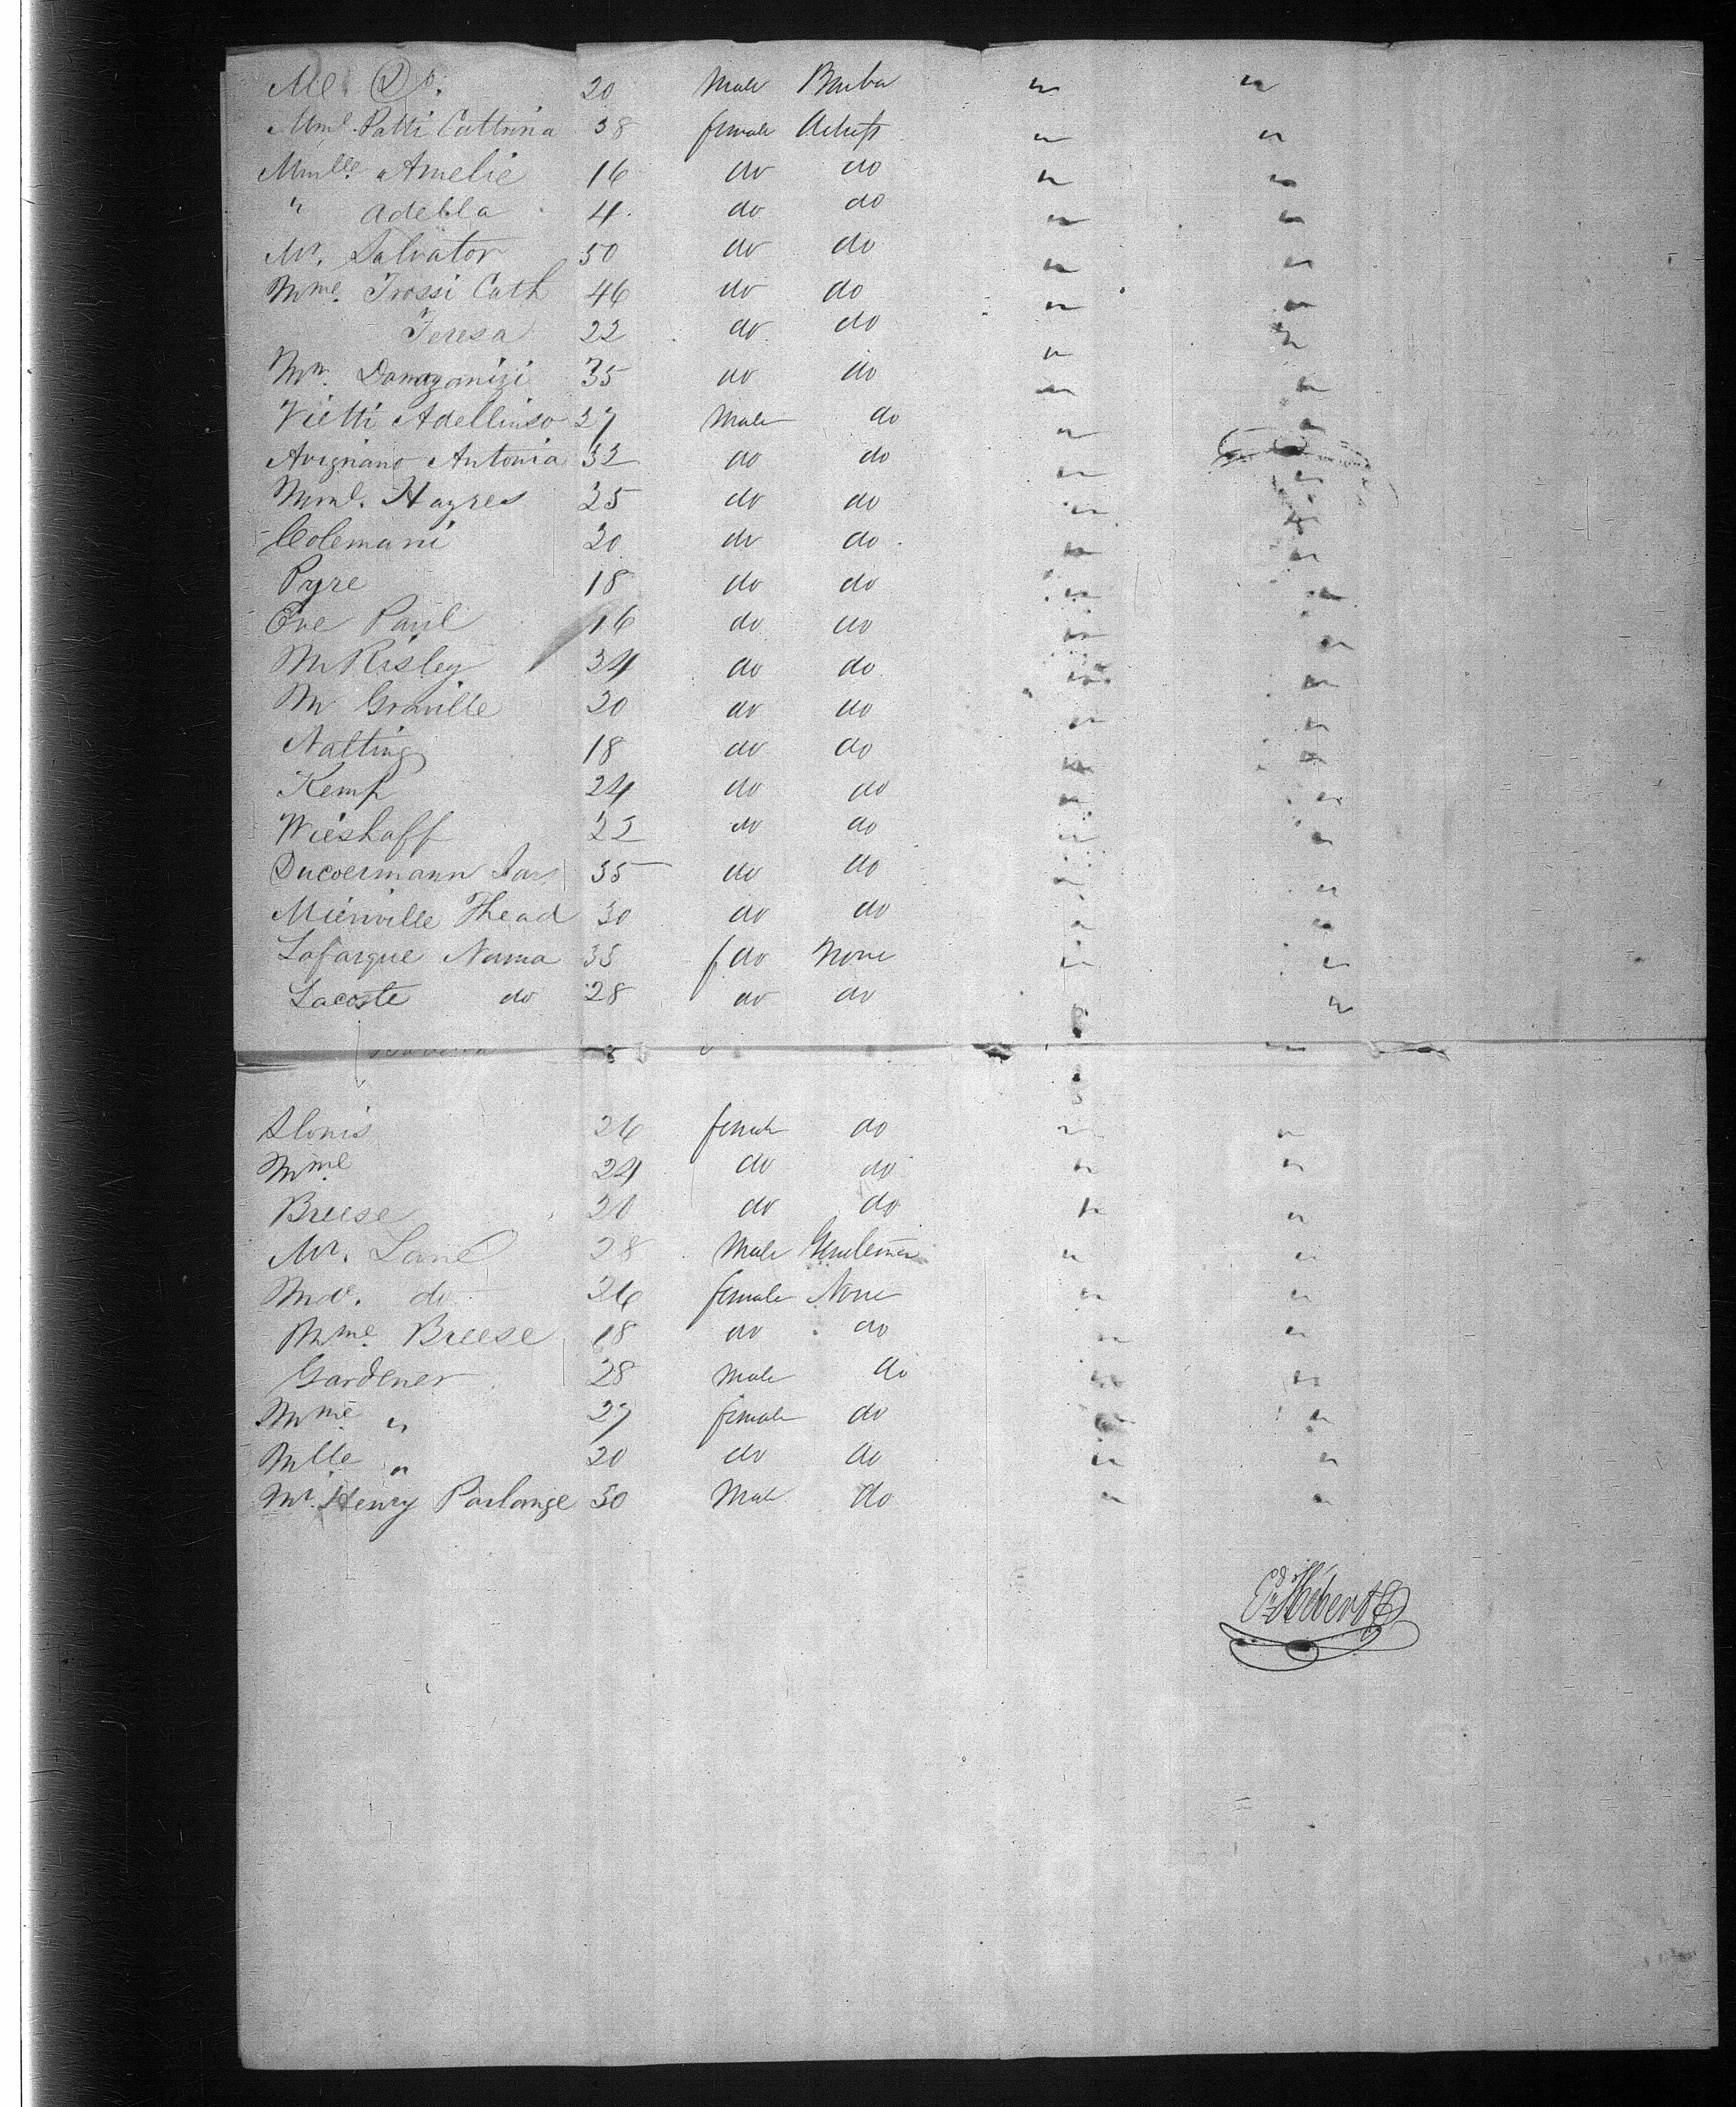 Me. Do. 20 Male Barber " "
Mme. Patti Cattrina 38 female Actress " "
Mmlle. Amelie 16 do do " "
" Adella 4. do do " "
Mr. Salvator 50 do do " "
Mme. Trossi Cath 46 do do " "
Teresa 22 do do " "
Mr. 35 do do " "
Vietti Adellinso 37 Male do " "
Avignano Antonia 32 do do " "
Mme. Hayres 25 do do " "
Colemani 20 do do " "
Pyre 18 do do " "
Eve Paul 16 do do " "
M Risley 34 do do " "
M Graville 20 do do " "
Natting 18 do do " "
Kemp 24 do do " "
Wieshoff 22 do do " "
Ducoermann 35 do do " "
Mierville Thead 30 do do " "
Lafargue Nerma 35 f do None " "
Lacoste do 28 do do "
Alonis 26 female do " "
Mme 24 do do " "
Breese 20 do do " "
Mr. Lane 28 Male Gentleman " "
Md. do 26 female None " "
Mme. Breese 18 do do " "
Gardener 28 Male do " "
Mme " 27 female do " "
Mlle " 20 do do " "
Mr. Henry Parlange 30 Male do " "
Hébert